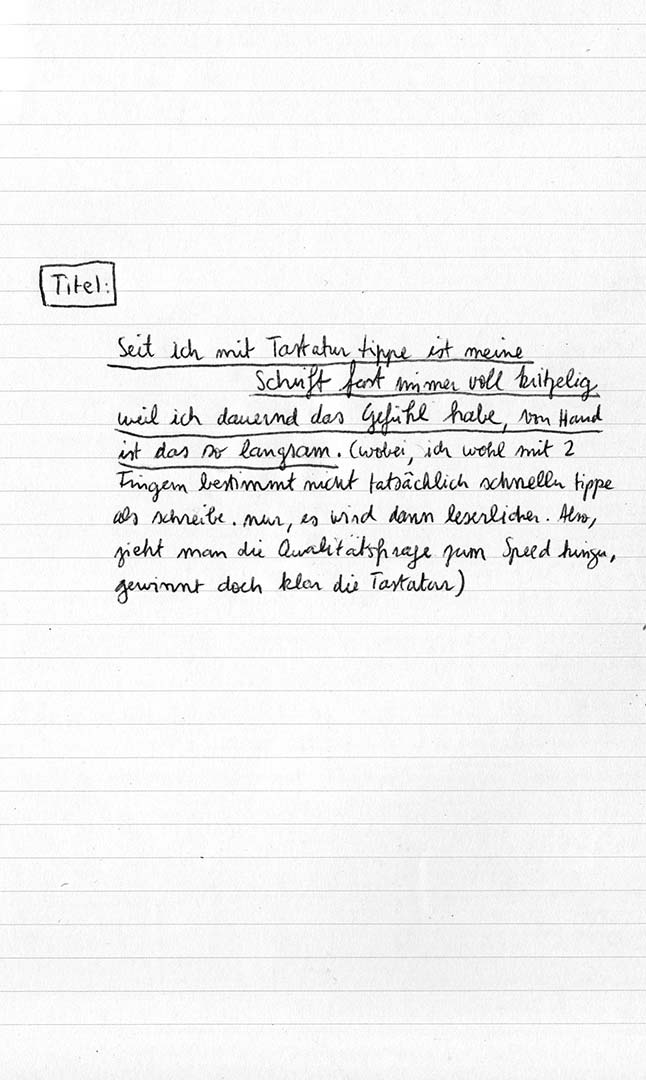 Titel:
Seit ich mit Tastatur tippe ist meine
Schrift fast immer voll kritzelig,
weil ich dauernd das Gefühl habe, von Hand
ist das so langsam. (wobei, ich wohl mit 2
Fingern bestimmt nicht tatsächlich schneller tippe
als schreibe. nur, es wird dann leserlicher. Also,
zieht man die Qualitätsfrage zum Speed hinzu,
gewinnt doch klar die Tastatur)